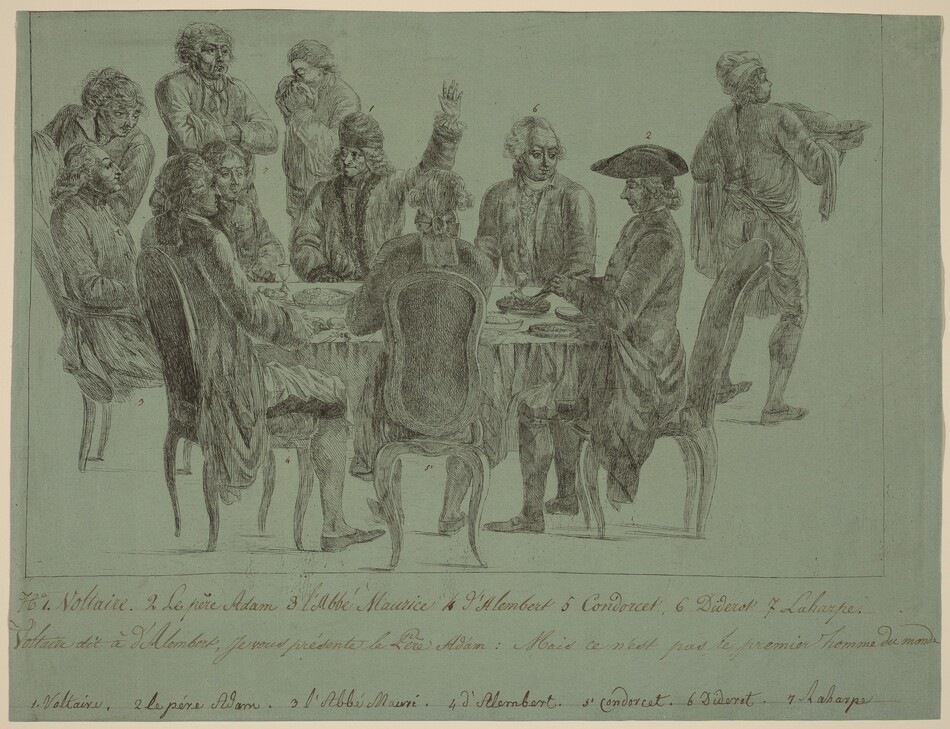 1
6
2
7
3
4
5
No 1. Voltaire. 2 Le père Adam 3 l'Abbé Maurice 4 d'Alembert 5 Condorcet, 6 Diderot 7 Laharpe.
Voltaire dit à d'Alembert, Je vous présente le Père Adam : Mais ce n'est pas le premier homme du monde
1. Voltaire. 2 le pére Adam. 3 l'Abbé Mauri. 4 d'Alembert. 5 Condorcet. 6 Diderot. 7 Laharpe